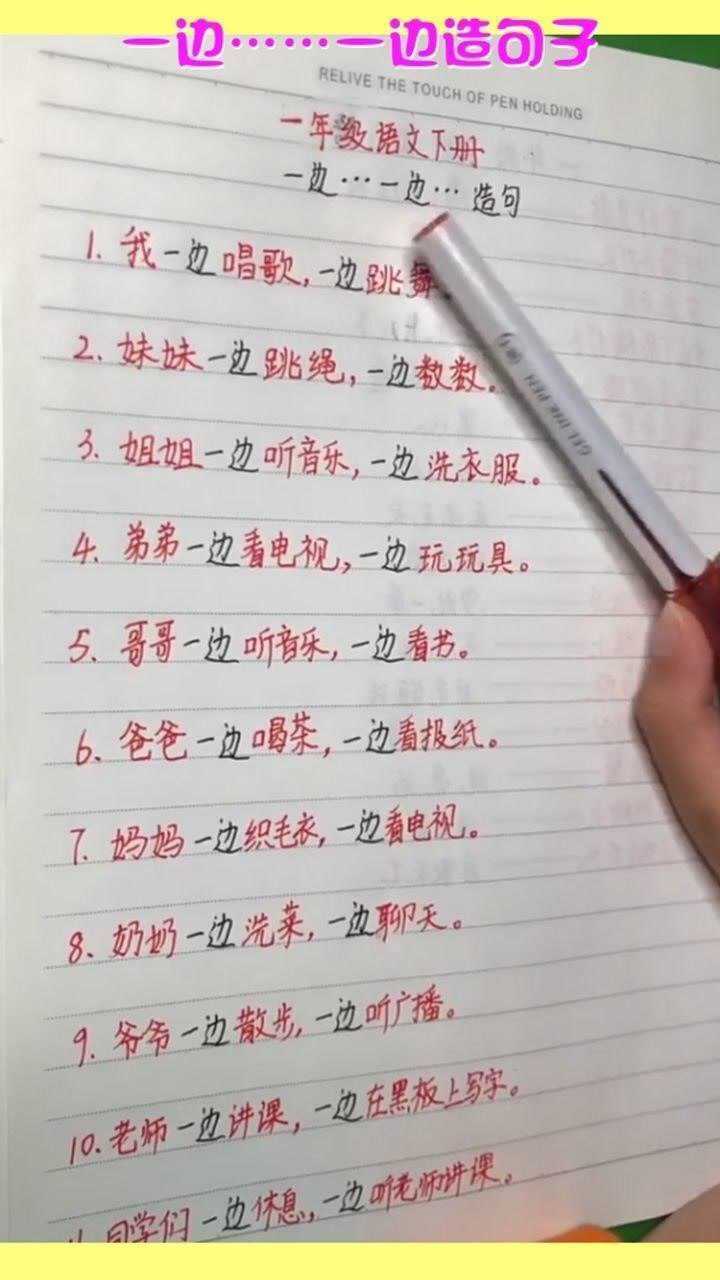 一边……一边造句子
RELIVE THE TOUCH OF PEN HOLDING
一年级语文下册
一边…一边…造句
1. 我一边唱歌,一边跳舞。
2. 妹妹一边跳绳,一边数数。
3. 姐姐一边听音乐,一边洗衣服。
4. 弟弟一边看电视,一边玩玩具。
5. 哥哥一边听音乐,一边看书。
6. 爸爸一边喝茶,一边看报纸。
7. 妈妈一边织毛衣,一边看电视。
8. 奶奶一边洗菜,一边聊天。
9. 爷爷一边散步,一边听广播。
10. 老师一边讲课,一边在黑板上写字。
同学们一边休息,一边听老师讲课。
GEL INK PEN